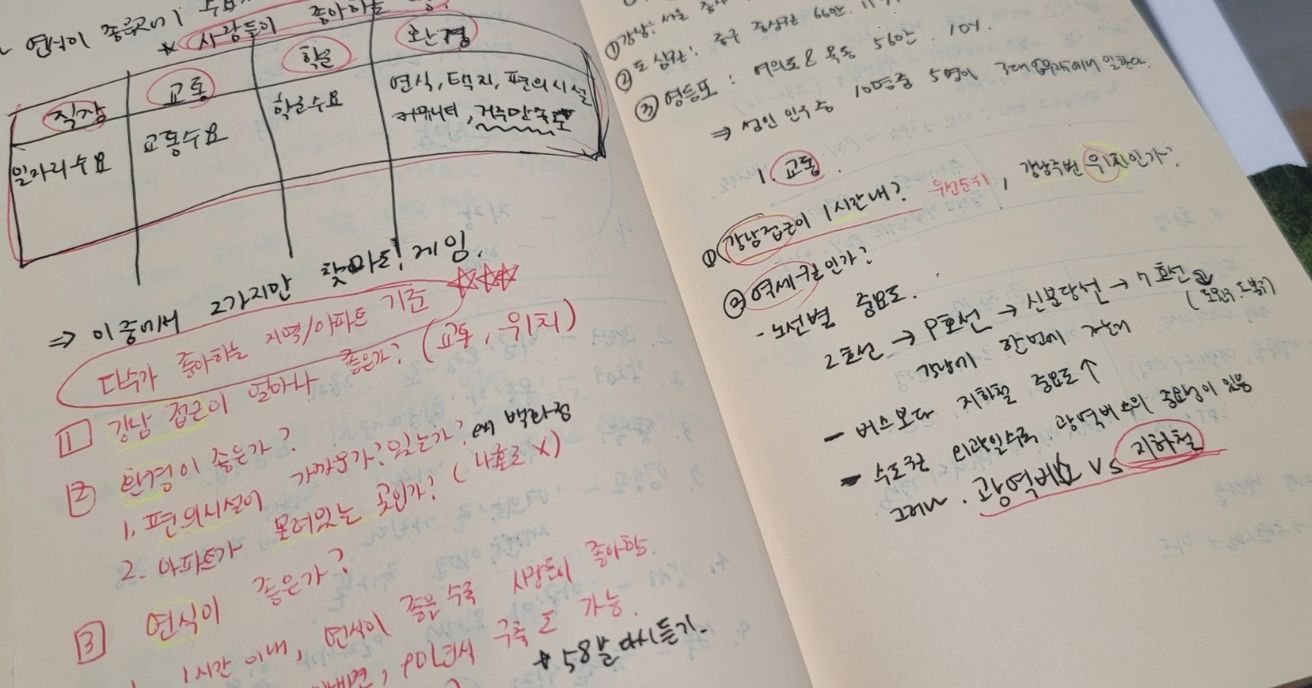 연식이 좋은지!
* 사람들이 좋아하는
직장 교통 학군 환경
일자리수요
교통수요
학군수요
연식, 택지, 편의시설
커뮤니티, 거주만족도
⇒ 이중에서 2가지만 찾아도! 게임.
다수가 좋아하는 지역/아파트 기준 ☆☆☆
1 강남 접근이 얼마나 좋은가? (교통, 위치)
2 환경이 좋은가?
1. 편의시설이 가까운가? 있는가? ex 백화점
2. 아파트가 모여있는 곳인가? (나홀로 X)
3 연식이 좋은가?
1시간 이내, 연식이 좋을수록 사람들이 좋아함.
, 90년식 구축도 가능.
* 58분 다시듣기.
① 강남: 서초
② 도심권: 중구 66만.
③ 영등포: 여의도 & 목동 56만. 10%.
⇒ 성인 인구 중 10명중 5명이 3대 에서 일한다.
1. 교통.
① 강남접근이 1시간내? 우선순위, 강남주변 위치인가?
② 역세권인가?
- 노선별 중요도.
2호선 → 9호선 → 신분당선 → 7호선
강남에 한번에 가는
- 버스보다 지하철 중요도↑
- 수도권 외곽일수록 광역버스의 중요성이 있음
그러나. 광역버스 VS 지하철